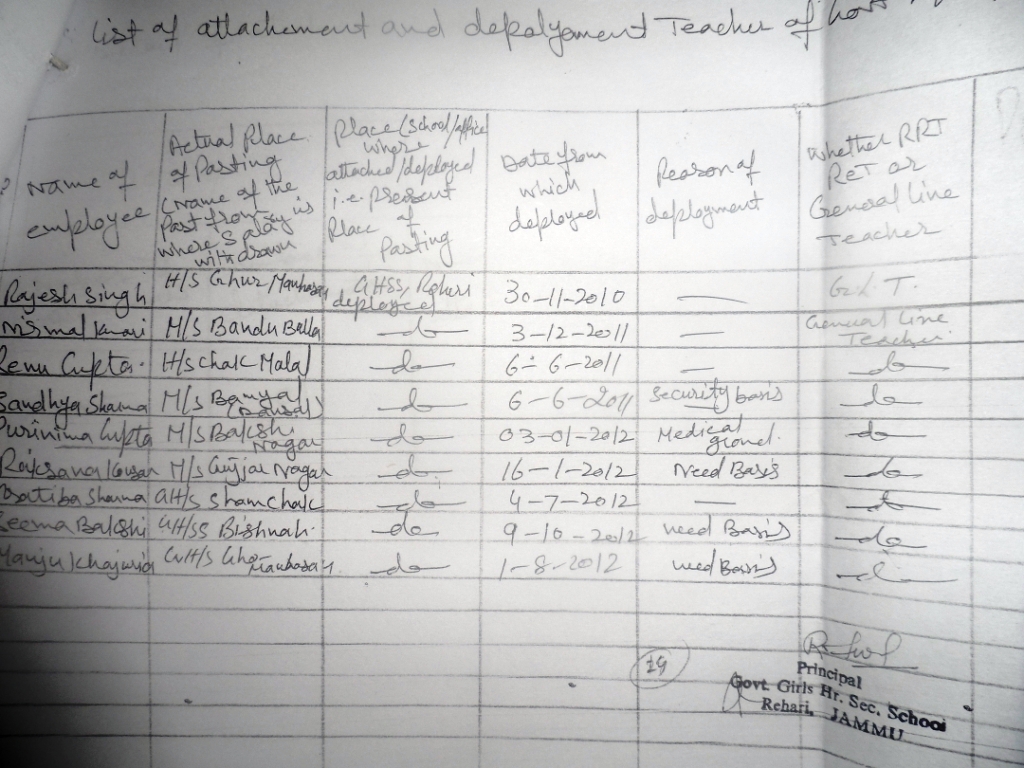 List of attachement and depolyement Teacher of
Name of
employee
Actual Place
of Posting
(Name of the
Post from
where Salary is
withdrawn
Place (school/office
where
attached/deployed
i.e. present
Place of
Posting
Date from
which
deployed
Reason of
deployment
Whether RRT
ReT or
General line
Teacher
Rajesh Singh H/S Ghur Manhasan GHSS, Rehari deployed 30-11-2010 — G.L.T.
Nirmal Kumari M/S Bandu Bella —do— 3-12-2011 — General Line Teacher
Renu Gupta H/S Chak Malal —do— 6-6-2011 — —do—
Sandhya Sharma M/S —do— 6-6-2011 Security basis —do—
Purinima Gupta M/S Bakshi Nagar —do— 03-01-2012 Medical ground. —do—
M/S Gujjar Nagar —do— 16-1-2012 Need Basis —do—
Sharma GH/S Sham Chak —do— 4-7-2012 — —do—
Seema Bakshi GHSS Bishnah. —do— 9-10-2012 need Basis —do—
Manju Khajuria GH/S Manhasan. —do— 1-8-2012 need Basis —do—
19
Principal
Govt. Girls Hr. Sec. School
Rehari, JAMMU